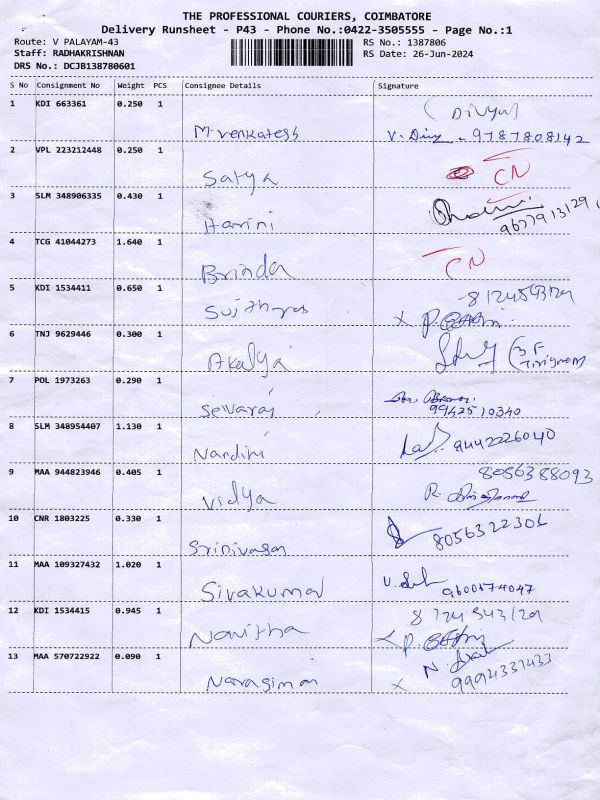 THE PROFESSIONAL COURIERS, COIMBATORE
Delivery Runsheet - P43 - Phone No.:0422-3505555 - Page No.:1
Route: V PALAYAM-43 RS No.: 1387806
Staff: RADHAKRISHNAN RS Date: 26-Jun-2024
DRS No.: DCJB138780601
S No Consignment No Weight PCS Consignee Details Signature
1 KDI 663361 0.250 1 (Divya)
M.venkatesh V. Divy - 9787808142
2 VPL 223212448 0.250 1
Satya CN
3 SLM 348906335 0.430 1
Harini 9677913129
4 TCG 41044273 1.640 1
Brinda CN
5 KDI 1534411 0.650 1 8124543129
Sujithra X P.
6 TNJ 9629446 0.300 1
Akalya
7 POL 1973263 0.290 1
Selvaraj 9942510340
8 SLM 348954407 1.130 1
Nandini 9442226040
9 MAA 944823946 0.405 1 8056388093
Vidya R.
10 CNR 1803225 0.330 1
Srinivasan 8056322306
11 MAA 109327432 1.020 1
Sivakumar 9600474047
12 KDI 1534415 0.945 1 8124543129
Navitha P.
13 MAA 570722922 0.090 1 N.
Narasiman X 9994331433